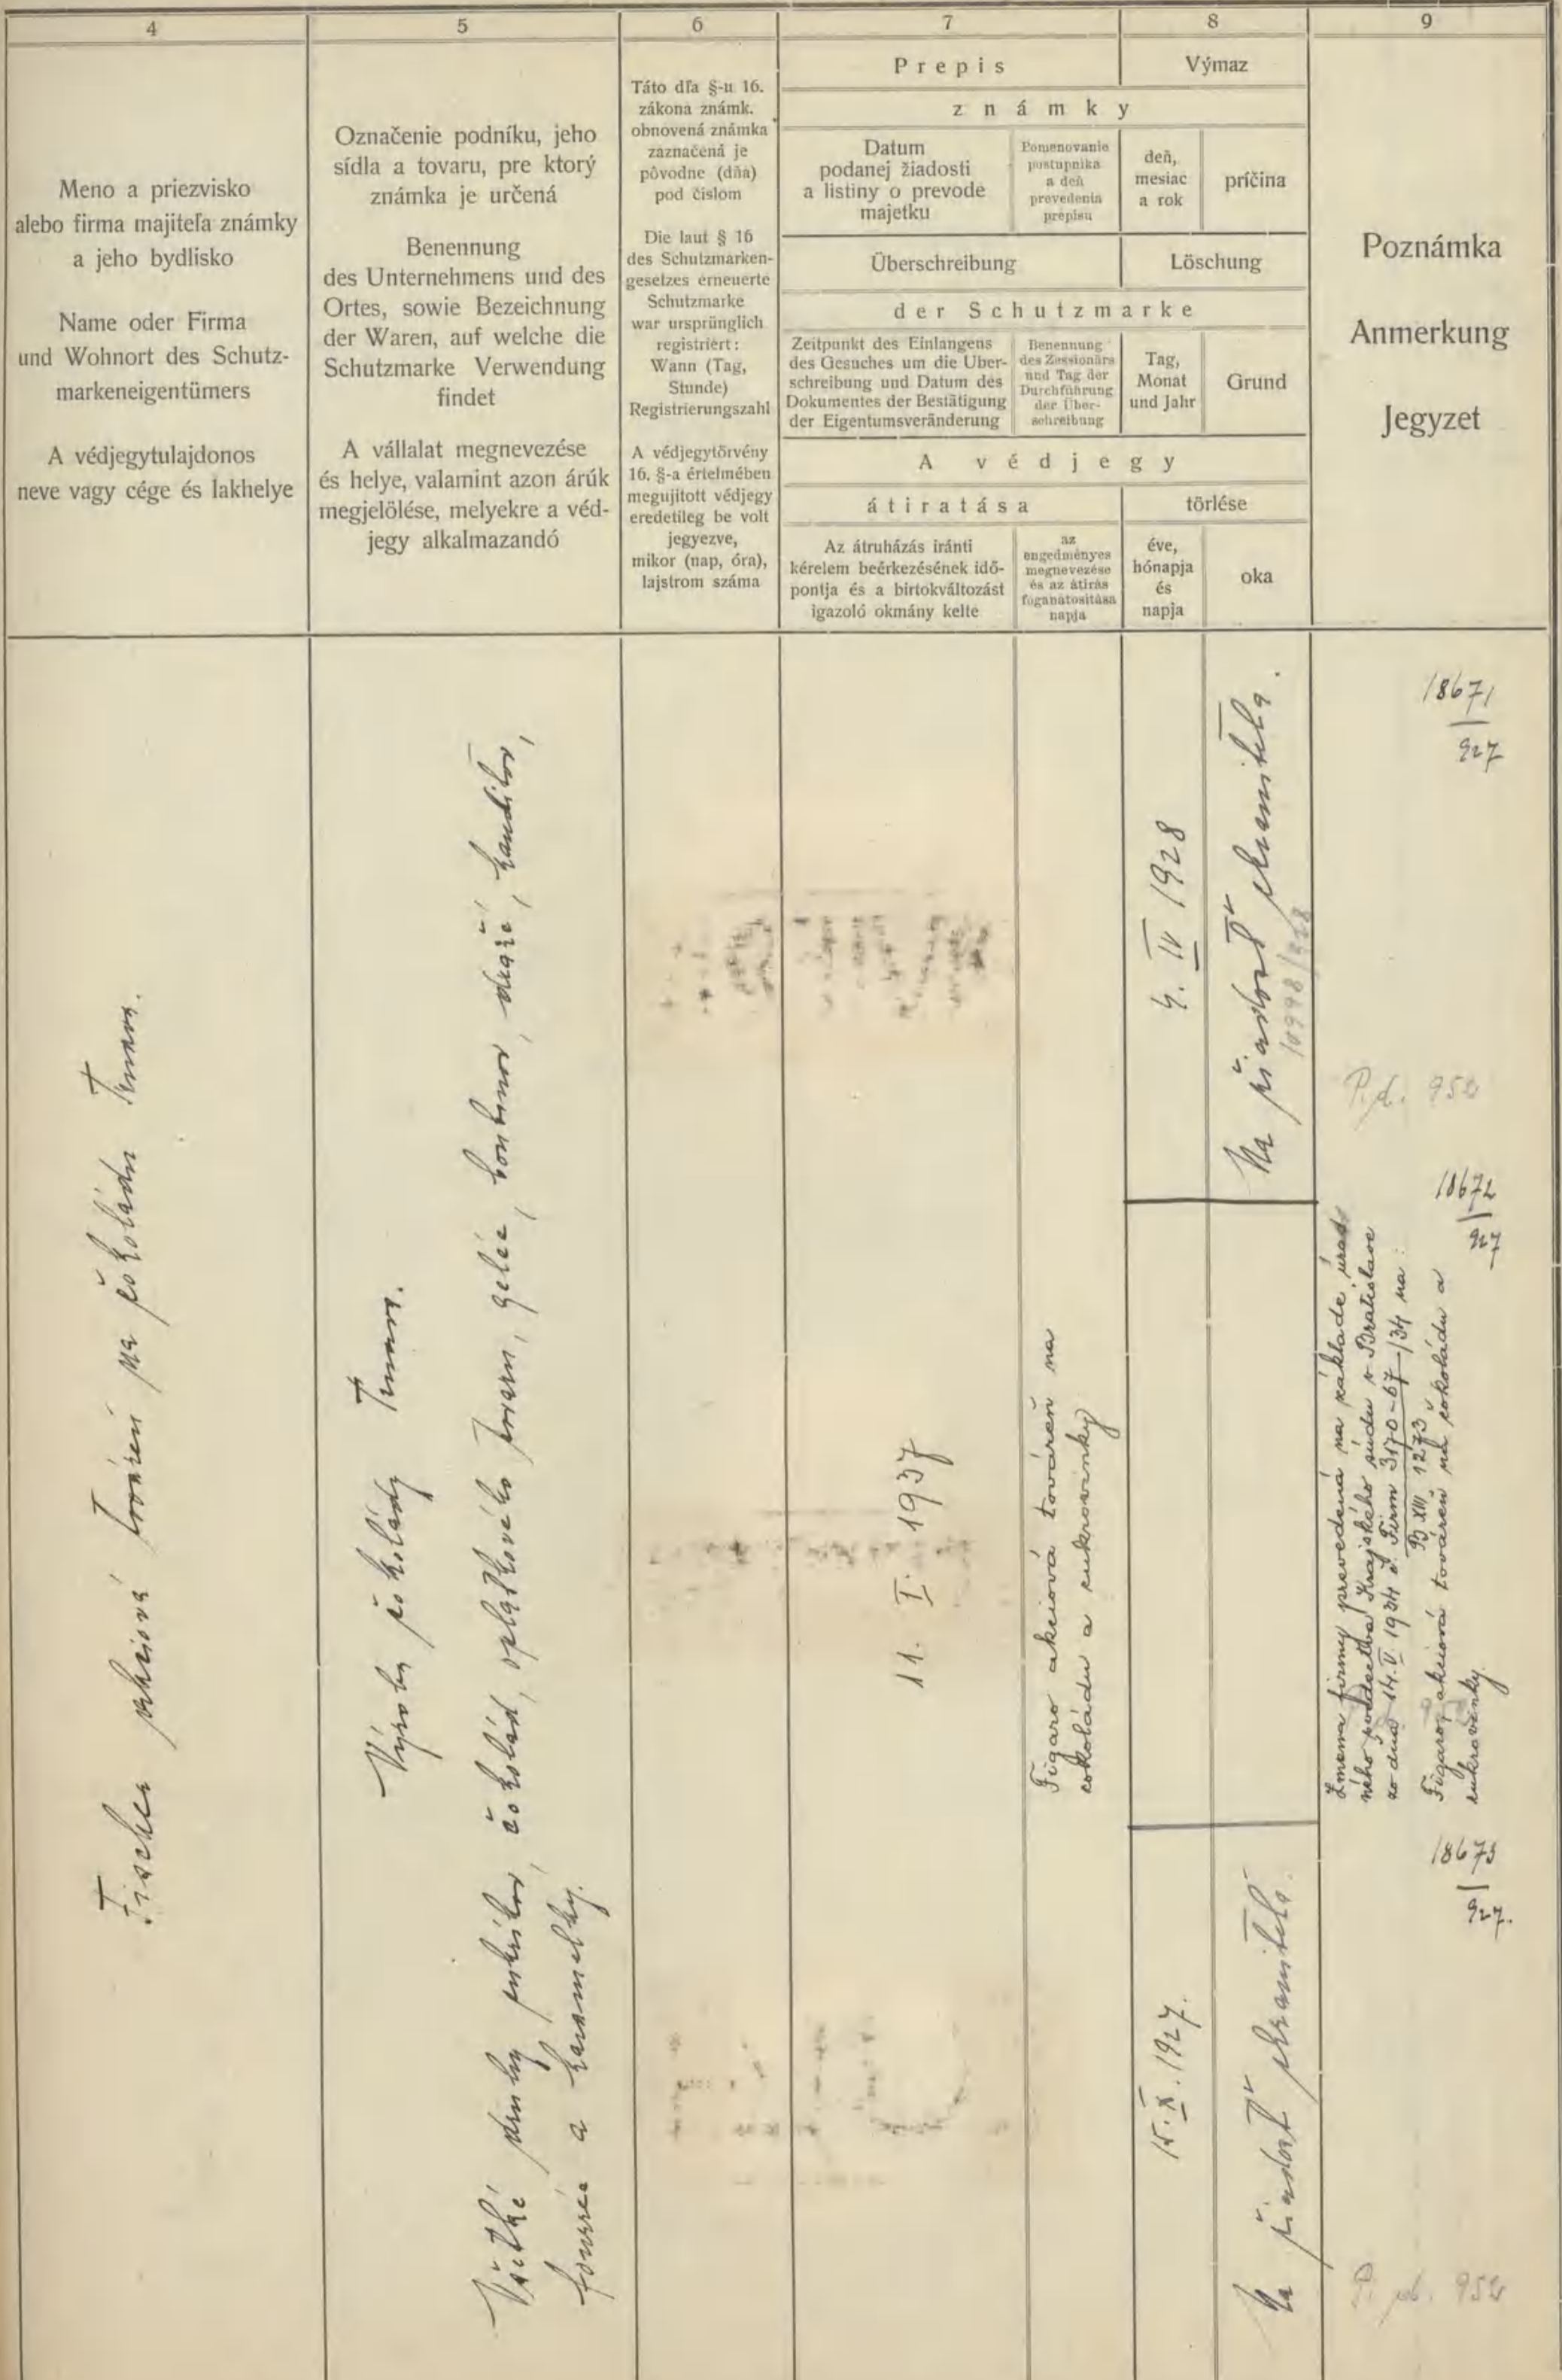 4
5
6
7
8
9
Meno a priezvisko
alebo firma majiteľa známky
a jeho bydlisko
Name oder Firma
und Wohnort des Schutz-
markeneigentümers
A védjegytulajdonos
neve vagy cége és lakhelye
Označenie podníku, jeho
sídla a tovaru, pre ktorý
známka je určená
Benennung
des Unternehmens und des
Ortes, sowie Bezeichnung
der Waren, auf welche die
Schutzmarke Verwendung
findet
A vállalat megnevezése
és helye, valamint azon árúk
megjelölése, melyekre a véd-
jegy alkalmazandó
Táto dľa §-u 16.
zákona známk.
obnovená známka
zaznačená je
pôvodne (dňa)
pod číslom
Die laut § 16
des Schutzmarken-
gesetzes erneuerte
Schutzmarke
war ursprünglich
registriert:
Wann (Tag,
Stunde)
Registrierungszahl
A védjegytörvény
16. §-a értelmében
megujitott védjegy
eredetileg be volt
jegyezve,
mikor (nap, óra),
lajstrom száma
Prepis
Výmaz
známky
Datum
podanej žiadosti
a listiny o prevode
majetku
Pomenovanie
postupnika
a deň
prevedenia
prepisu
deň,
mesiac
a rok
príčina
Überschreibung
Löschung
der Schutzmarke
Zeitpunkt des Einlangens
des Gesuches um die Über-
schreibung und Datum des
Dokumentes der Bestätigung
der Eigentumsveränderung
Benennung
des Zessionärs
und Tag der
Durchführung
der Über-
schreibung
Tag,
Monat
und Jahr
Grund
A védjegy
átiratása
törlése
Az átruházás iránti
kérelem beérkezésének idő-
pontja és a birtokváltozást
igazoló okmány kelte
az
engedményes
megnevezése
és az átirás
foganatositása
napja
éve,
hónapja
és
napja
oka
Poznámka
Anmerkung
Jegyzet
Fischer akciová továreň na čokoládu Trnava.
Výroba čokolády Trnava.
Všetké druhy cukríkov, čokolád, oplatkového tovaru, gelée, bonbonov, dražé, kanditov,
fourrée a karamelky.
11. I. 1937
Figaro akciová továreň na
čokoládu a cukrovinky
4. IV 1928
Na žiadosť chraniteľa.
10998/928
15. X. 1927.
Na žiadosť chraniteľa.
18671
927
P.d. 952
18672
927
Zmena firmy prevedená na základe úrad-
ného posdectva Krajského súdu v Bratislave
zo dňa 14. V. 1934 č. Firm 3170-67-/34 na:
B XIII 1273
Figaro, akciová továreň na čokoládu a
cukrovinky.
18673
927.
P. d. 952